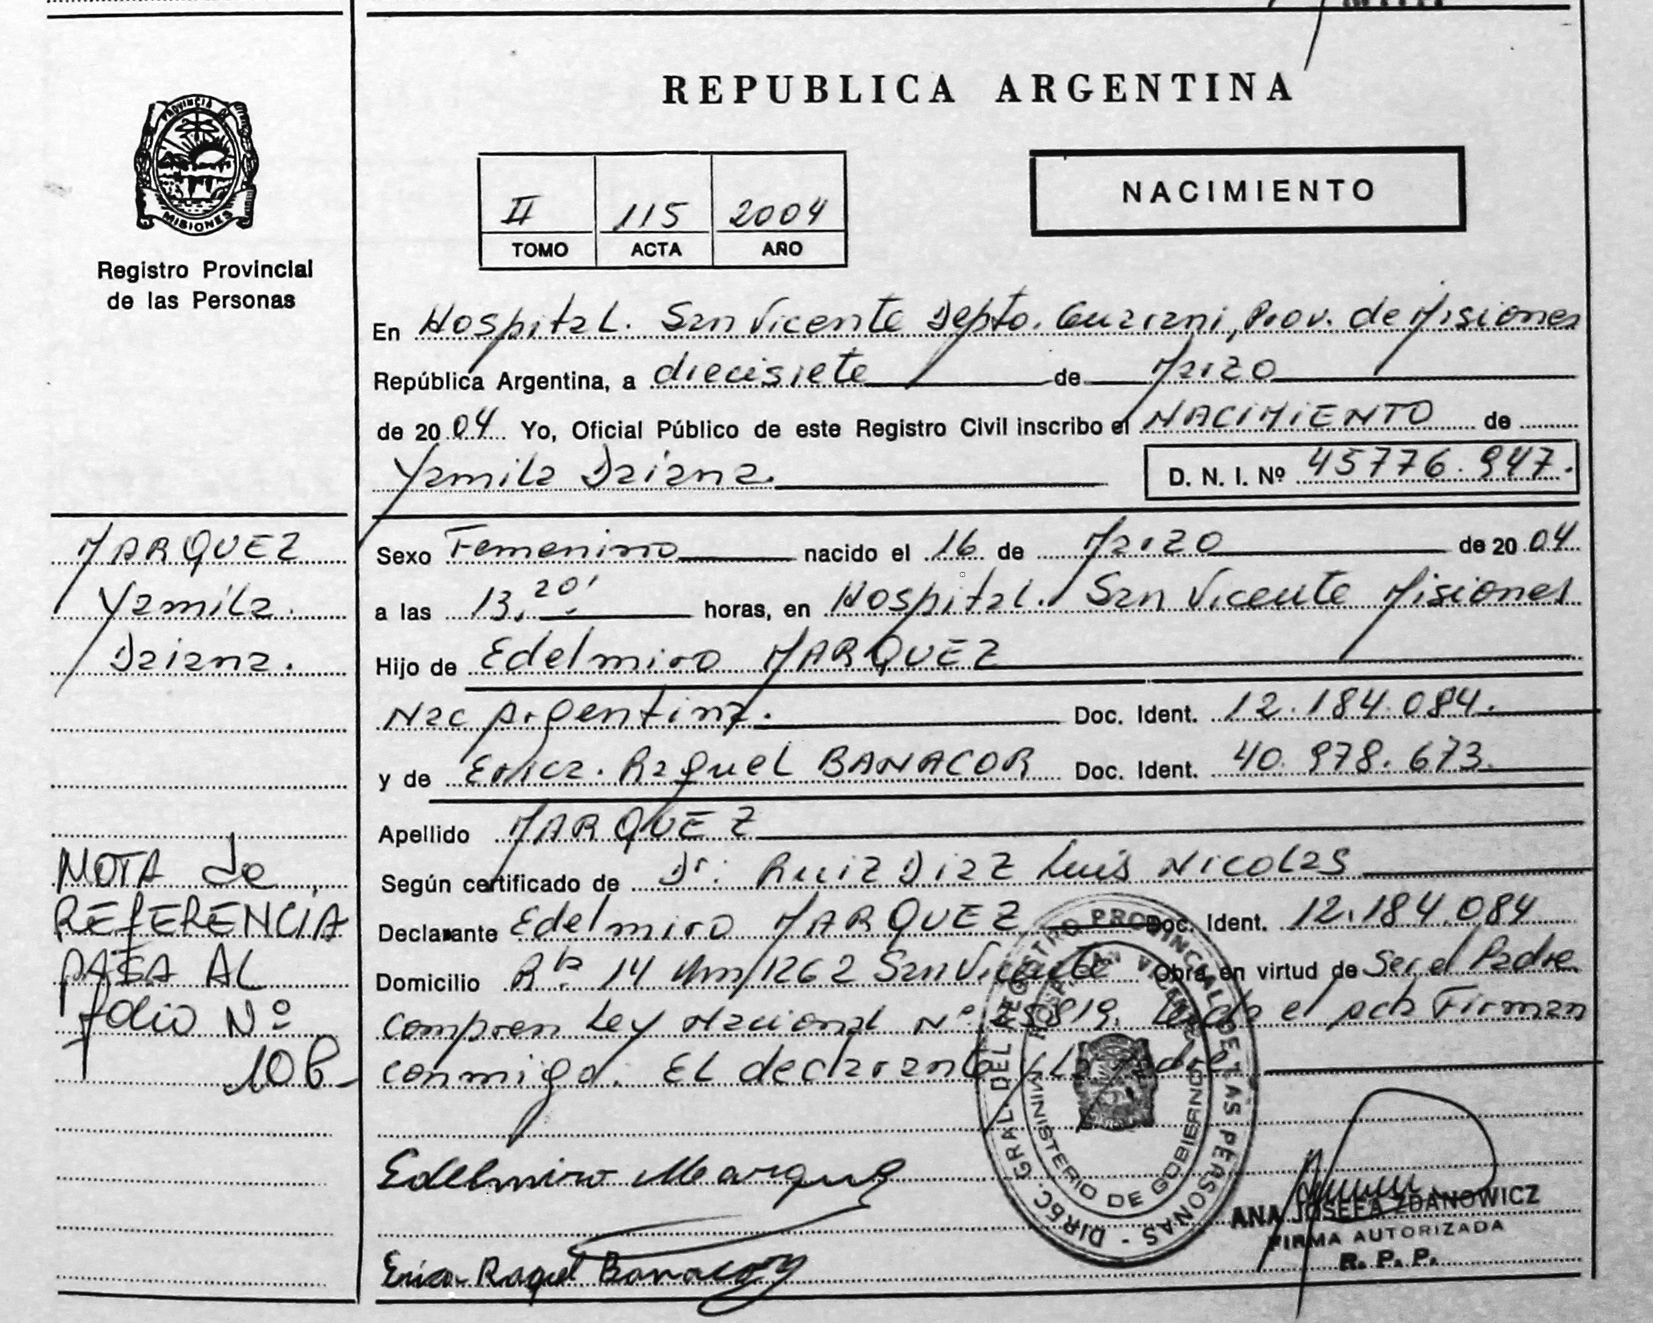 REPUBLICA ARGENTINA
PROVINCIA DE MISIONES
Registro Provincial
de las Personas
II 115 2004
TOMO ACTA AÑO
NACIMIENTO
En Hospital. San Vicente Depto. Guarani, Prov. de Misiones
República Argentina, a diecisiete de Marzo
de 2004 Yo, Oficial Público de este Registro Civil inscribo el NACIMIENTO de
Yamila Daiana. D. N. I. Nº 45776.947.
MARQUEZ
Yamila.
Daiana.
Sexo Femenino nacido el 16 de Marzo de 2004
a las 13,20' horas, en Hospital. San Vicente Misiones
Hijo de Edelmiro MARQUEZ
Nac Argentina. Doc. Ident. 12.184.084.
y de Erica. Raquel BANACOR Doc. Ident. 40.978.673
Apellido MARQUEZ
Según certificado de Dr: Ruiz Diaz Luis Nicolas
Declarante Edelmiro MARQUEZ Doc. Ident. 12.184.084
Domicilio Rta. 14 Km/1262 San Vicente Obra en virtud de Ser el Padre
compren Ley Nacional Nº 25819. Leida el acta Firman
conmigo. El declarante y La Madre
NOTA de
REFERENCIA
PASA AL
folio Nº
106
Edelmiro Marquez
Erica Raquel Banacor
DIREC. GRAL. DEL REGISTRO PROVINCIAL DE LAS PERSONAS
MINISTERIO DE GOBIERNO
ANA JOSEFA ZDANOWICZ
FIRMA AUTORIZADA
R. P. P.